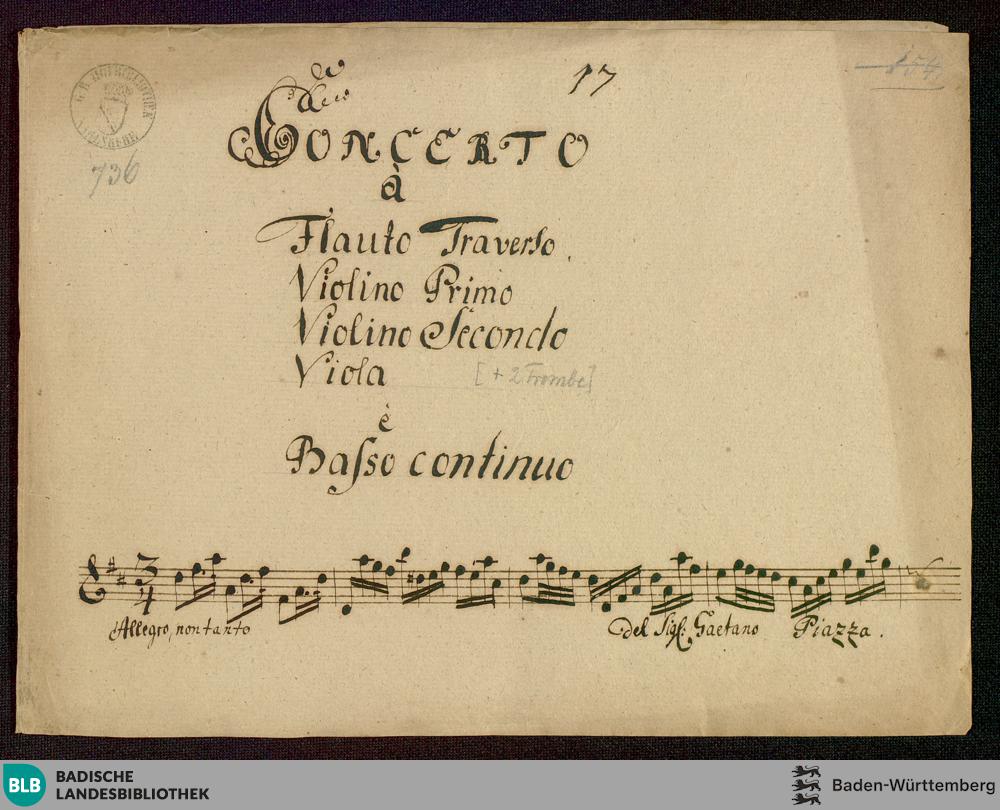 17
154
G. B. HOFBIBLIOTHEK
KARLSRUHE
736
CONCERTO
à
Flauto Traverso.
Violino Primo
Violino Secondo
Viola [+ 2 Trombe]
è
Basso continuo
3/4
Allegro, non tanto
del Sigr: Gaetano Piazza.
BLB BADISCHE
LANDESBIBLIOTHEK
Baden-Württemberg